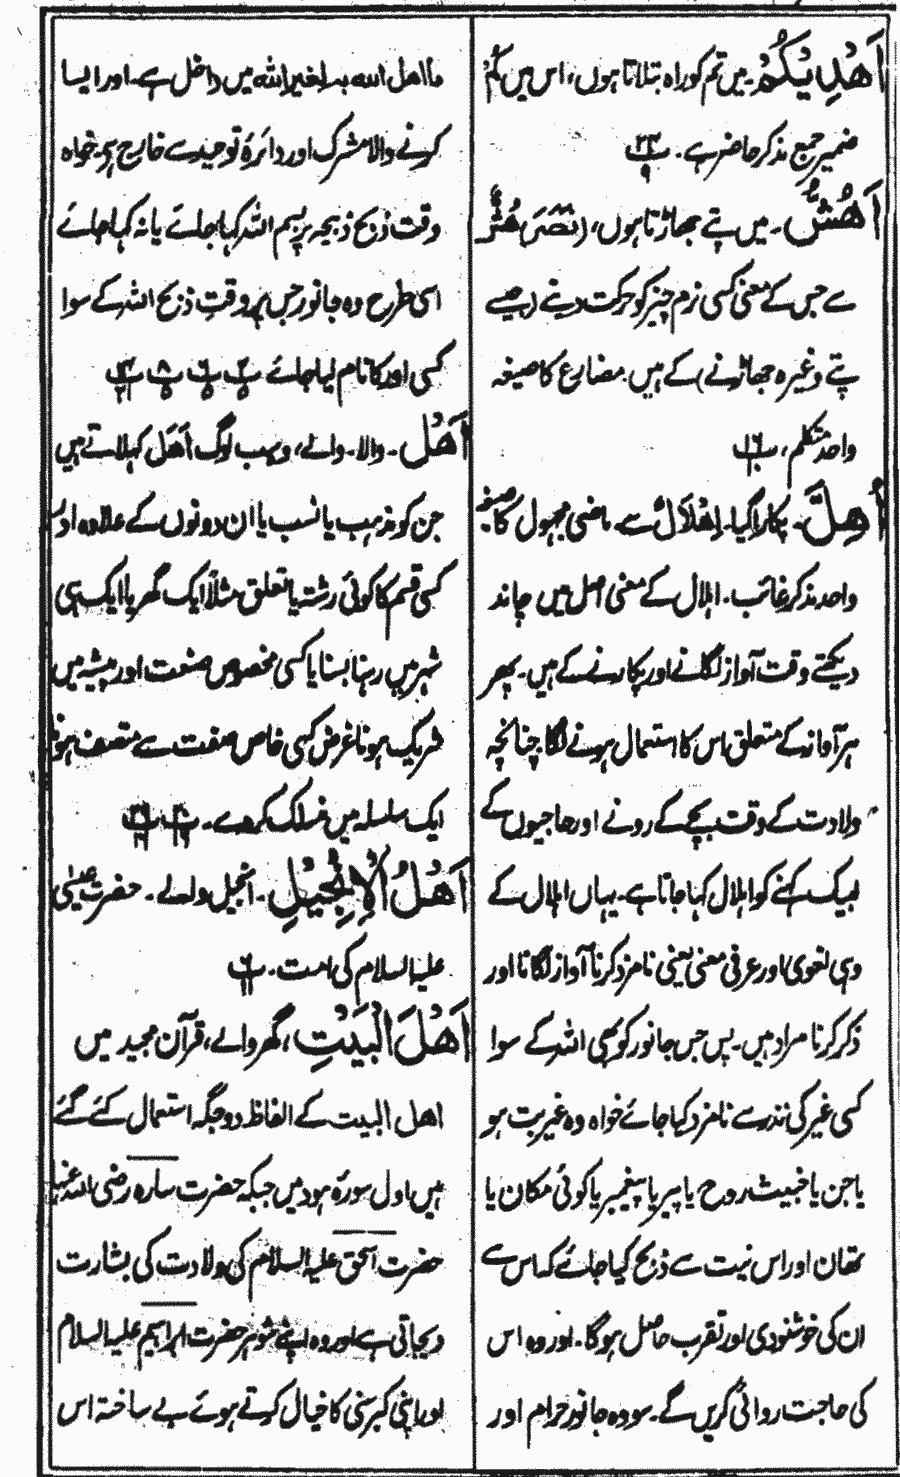 أَهْدِيْكُمْ۔ میں تم کو راہ بتلاتا ہوں، اس میں كُمْ
ضمیر جمع مذکر حاضر ہے۔ پ ٢٣ ٩
أَهُشُّ۔ میں پتے جھاڑتا ہوں، (نَصَرَ) هَشٌّ
سے جس کے معنی کسی نرم چیز کو حرکت دینے (جیسے
پتے وغیرہ جھاڑنے) کے ہیں۔ مضارع کا صیغہ
واحد متکلم، پ ١٦
أُهِلَّ۔ پکارا گیا۔ اِهْلَالٌ سے۔ ماضی مجہول کا صیغہ
واحد مذکر غائب۔ اہلال کے معنی اصل میں چاند
دیکھتے وقت آواز لگانے اور پکارنے کے ہیں۔ پھر
ہر آواز کے متعلق اس کا استعمال ہونے لگا۔ چنانچہ
ولادت کے وقت بچے کے رونے اور حاجیوں کے
لبیک کہنے کو اہلال کہا جاتا ہے۔ یہاں اہلال کے
وہی لغوی اور عرفی معنی یعنی نامزد کرنا آواز لگانا اور
ذکر کرنا مراد ہیں۔ پس جس جانور کو بھی اللہ کے سوا
کسی غیر کی نذر سے نامزد کیا جائے خواہ وہ غیر بت ہو
یا جن یا خبیث روح یا پیر یا پیغمبر یا کوئی مکان یا
تھان اور اس نیت سے ذبح کیا جائے کہ اس سے
ان کی خوشنودی اور تقرب حاصل ہوگا۔ اور وہ اس
کی حاجت روائی کریں گے۔ سو وہ جانور حرام اور
ما اهل الله به لغیر الله میں داخل ہے۔ اور ایسا
کرنے والا مشرک اور دائرۂ توحید سے خارج ہے، خواہ
وقت ذبح ذبیحہ پر بسم اللہ کہا جائے یا نہ کہا جائے
اسی طرح وہ جانور جس پر وقت ذبح اللہ کے سوا
کسی اور کا نام لیا جائے پ ٢ پ ٦ پ ٨ پ ١٤
أَهْلُ۔ والا۔ والے، وہ سب لوگ اَهْل کہلاتے ہیں
جن کو مذہب یا نسب یا ان دونوں کے علاوہ اور
کسی قسم کا کوئی رشتہ یا تعلق مثلاً ایک گھر یا ایک ہی
شہر میں رہنا بسنا یا کسی مخصوص صنعت اور پیشہ میں
شریک ہونا غرض کسی خاص صفت سے متصف ہونا
ایک سلسلہ میں منسلک کر دے۔
أَهْلُ الْإِنْجِيْلِ۔ انجیل والے۔ حضرت عیسٰی
علیہ السلام کی امت۔ پ ٦ ١١
أَهْلَ الْبَيْتِ، گھر والے، قرآن مجید میں
اهل البیت کے الفاظ دو جگہ استعمال کئے گئے
ہیں اول سورۂ ہود میں جبکہ حضرت سارہ رضی اللہ عنہا
حضرت اسحٰق علیہ السلام کی ولادت کی بشارت
دی جاتی ہے اور وہ اپنے شوہر حضرت ابراہیم علیہ السلام
اور اپنی کبر سنی کا خیال کرتے ہوئے بے ساختہ اس